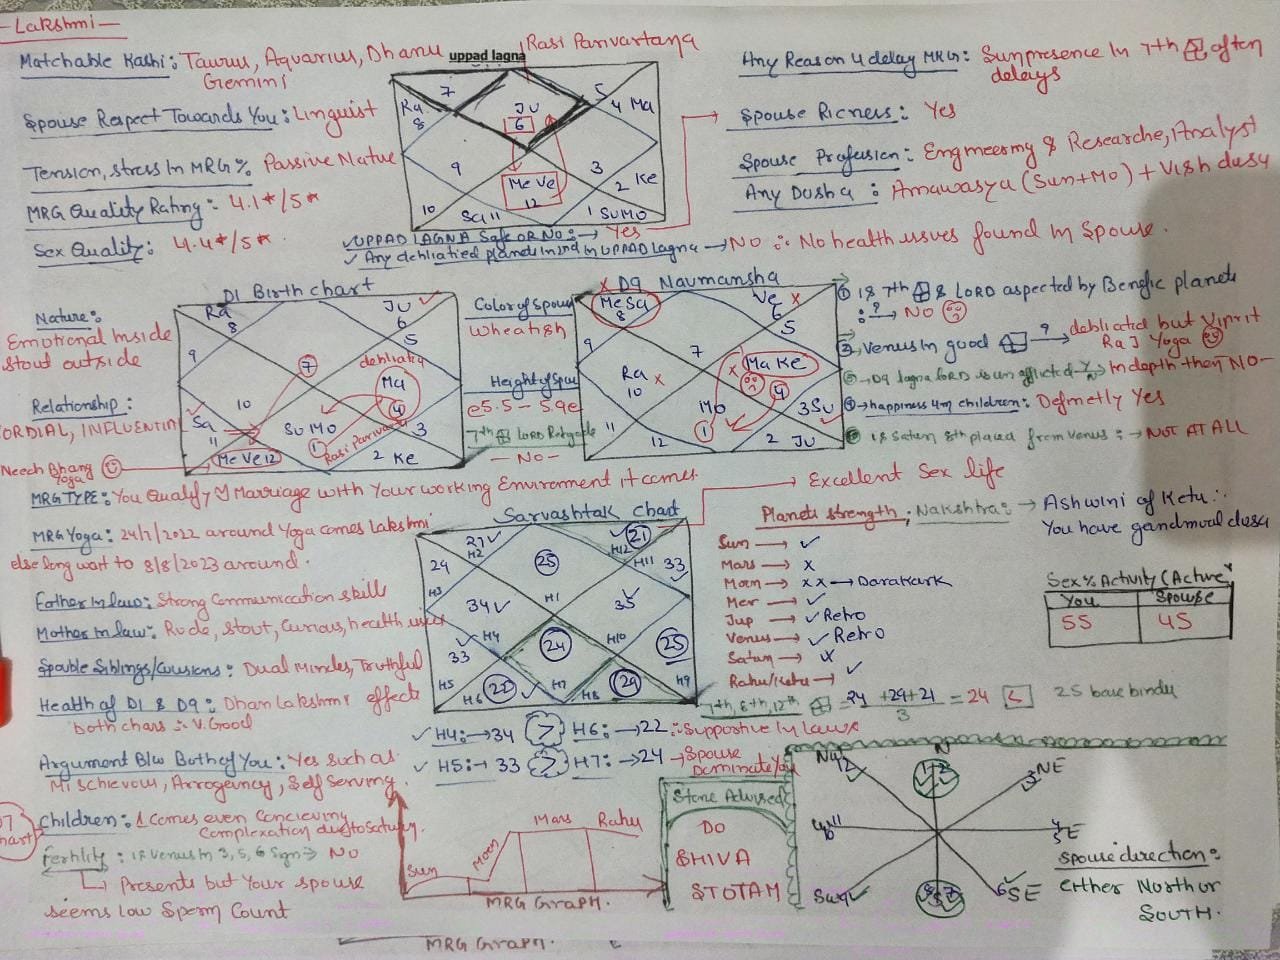 -Lakshmi-
Matchable Rashi: Taurus, Aquarius, Dhanu
Gemini
Spouse Respect Towards You: Linguist
Tension, stress In MRG%: Passive Nature
MRG Quality Rating: 4.1*/5*
Sex Quality: 4.4*/5*
uppad lagna
Rasi Parivartana
7
Ra
8
JU
6
5
4 Ma
9
3
2 Ke
Me Ve
12
10
Sa 11
1 SUMO
Any Reason 4 delay MRG: Sun presence In 7th often
delays
Spouse Richness: Yes
Spouse Profession: Engineering & Researche, Analyst
Any Dosha: Amawasya (Sun+Mo) + Vish dosh
UPPAD LAGNA Safe OR No: → Yes
Any dehliatied planets In 2nd in UPPAD Lagna → NO ∴ No health issues found In Spouse.
Nature:
Emotional Inside
Stout outside
Relationship:
CORDIAL, INFLUENTIAL
Neech Bhang
Yoga
D1 Birth chart
Ra
8
JU
6
5
9
7
debliated
Ma
4
10
Sa
11
SU MO
1
Rasi Parivar
3
Me Ve 12
2 Ke
Color of Spouse
Wheatish
Height of Spouse
5.5 - 5.9
7th LORD Retrograde
- No -
x D9 Navmansha
Me Sa
8
Ve x
6
5
9
7
Ma Ke
4
Ra x
10
Mo
1
3 Su
11
12
2 JU
① Is 7th & LORD aspected by Benefic planets
: → NO
② Venus In good → debliated but Viprit
Raj Yoga
③ → D9 lagna LORD is un afflicted → In depth then NO-
④ → happiness 4m children: Definetly Yes
⑤ Is Saturn 8th placed from Venus: → NOT AT ALL
MRG TYPE: You Qualify Marriage with Your working Enviroment it comes.
MRG Yoga: 24/7/2022 around Yoga comes Lakshmi
else long wait to 8/8/2023 around.
Father In law: Strong Communication skills
Mother In law: Rude, Stout, Curious, health issues
Spouse Siblings/Cousions: Dual Mindes, Truthful
Health of D1 & D9: Dhan Lakshmi effects
both chars ∴ V.Good
Argument B/w Both of You: Yes such as
Mischievous, Arrogancy, Self Serving.
Children: 1 comes even Concieving
Complexation due to Saturn.
Fertility: is Venus In 3, 5, 6 sign → No
Presents but Your spouse
seems low Sperm Count
D7
Chart
Sarvashtak Chart
→ Excellent Sex life
27
H2
25
21
H12
24
H3
H11 33
34
H1
35
H4
24
H10
25
33
H5
H6 22
H7
H8 29
H9
H4: → 34 > H6: → 22 ∴ Supportive In Laws
H5: → 33 > H7: → 24 → Spouse
Dominate You
Planets strength; Nakshtra: → Ashwini of Ketu ∴
You have gandmool dosh
Sun → ✓
Mars → x
Moon → x x → Darakark
Mer → ✓
Jup → ✓ Retro
Venus → ✓ Retro
Saturn → x
Rahu/Ketu → ✓
7th, 8th, 12th = 24 + 29 + 21 / 3 = 24 < 25 base bindu
Sex % Activity (Active)
You Spouse
55 45
Sun
Moon
Mars
Rahu
MRG Graph.
MRG Graph.
Stone Advised
DO
SHIVA
STOTAM
NW
12
N
1 2
3 NE
W
E
SW 9
8 S 7
6 SE
Spouse direction:
Either North or
South.